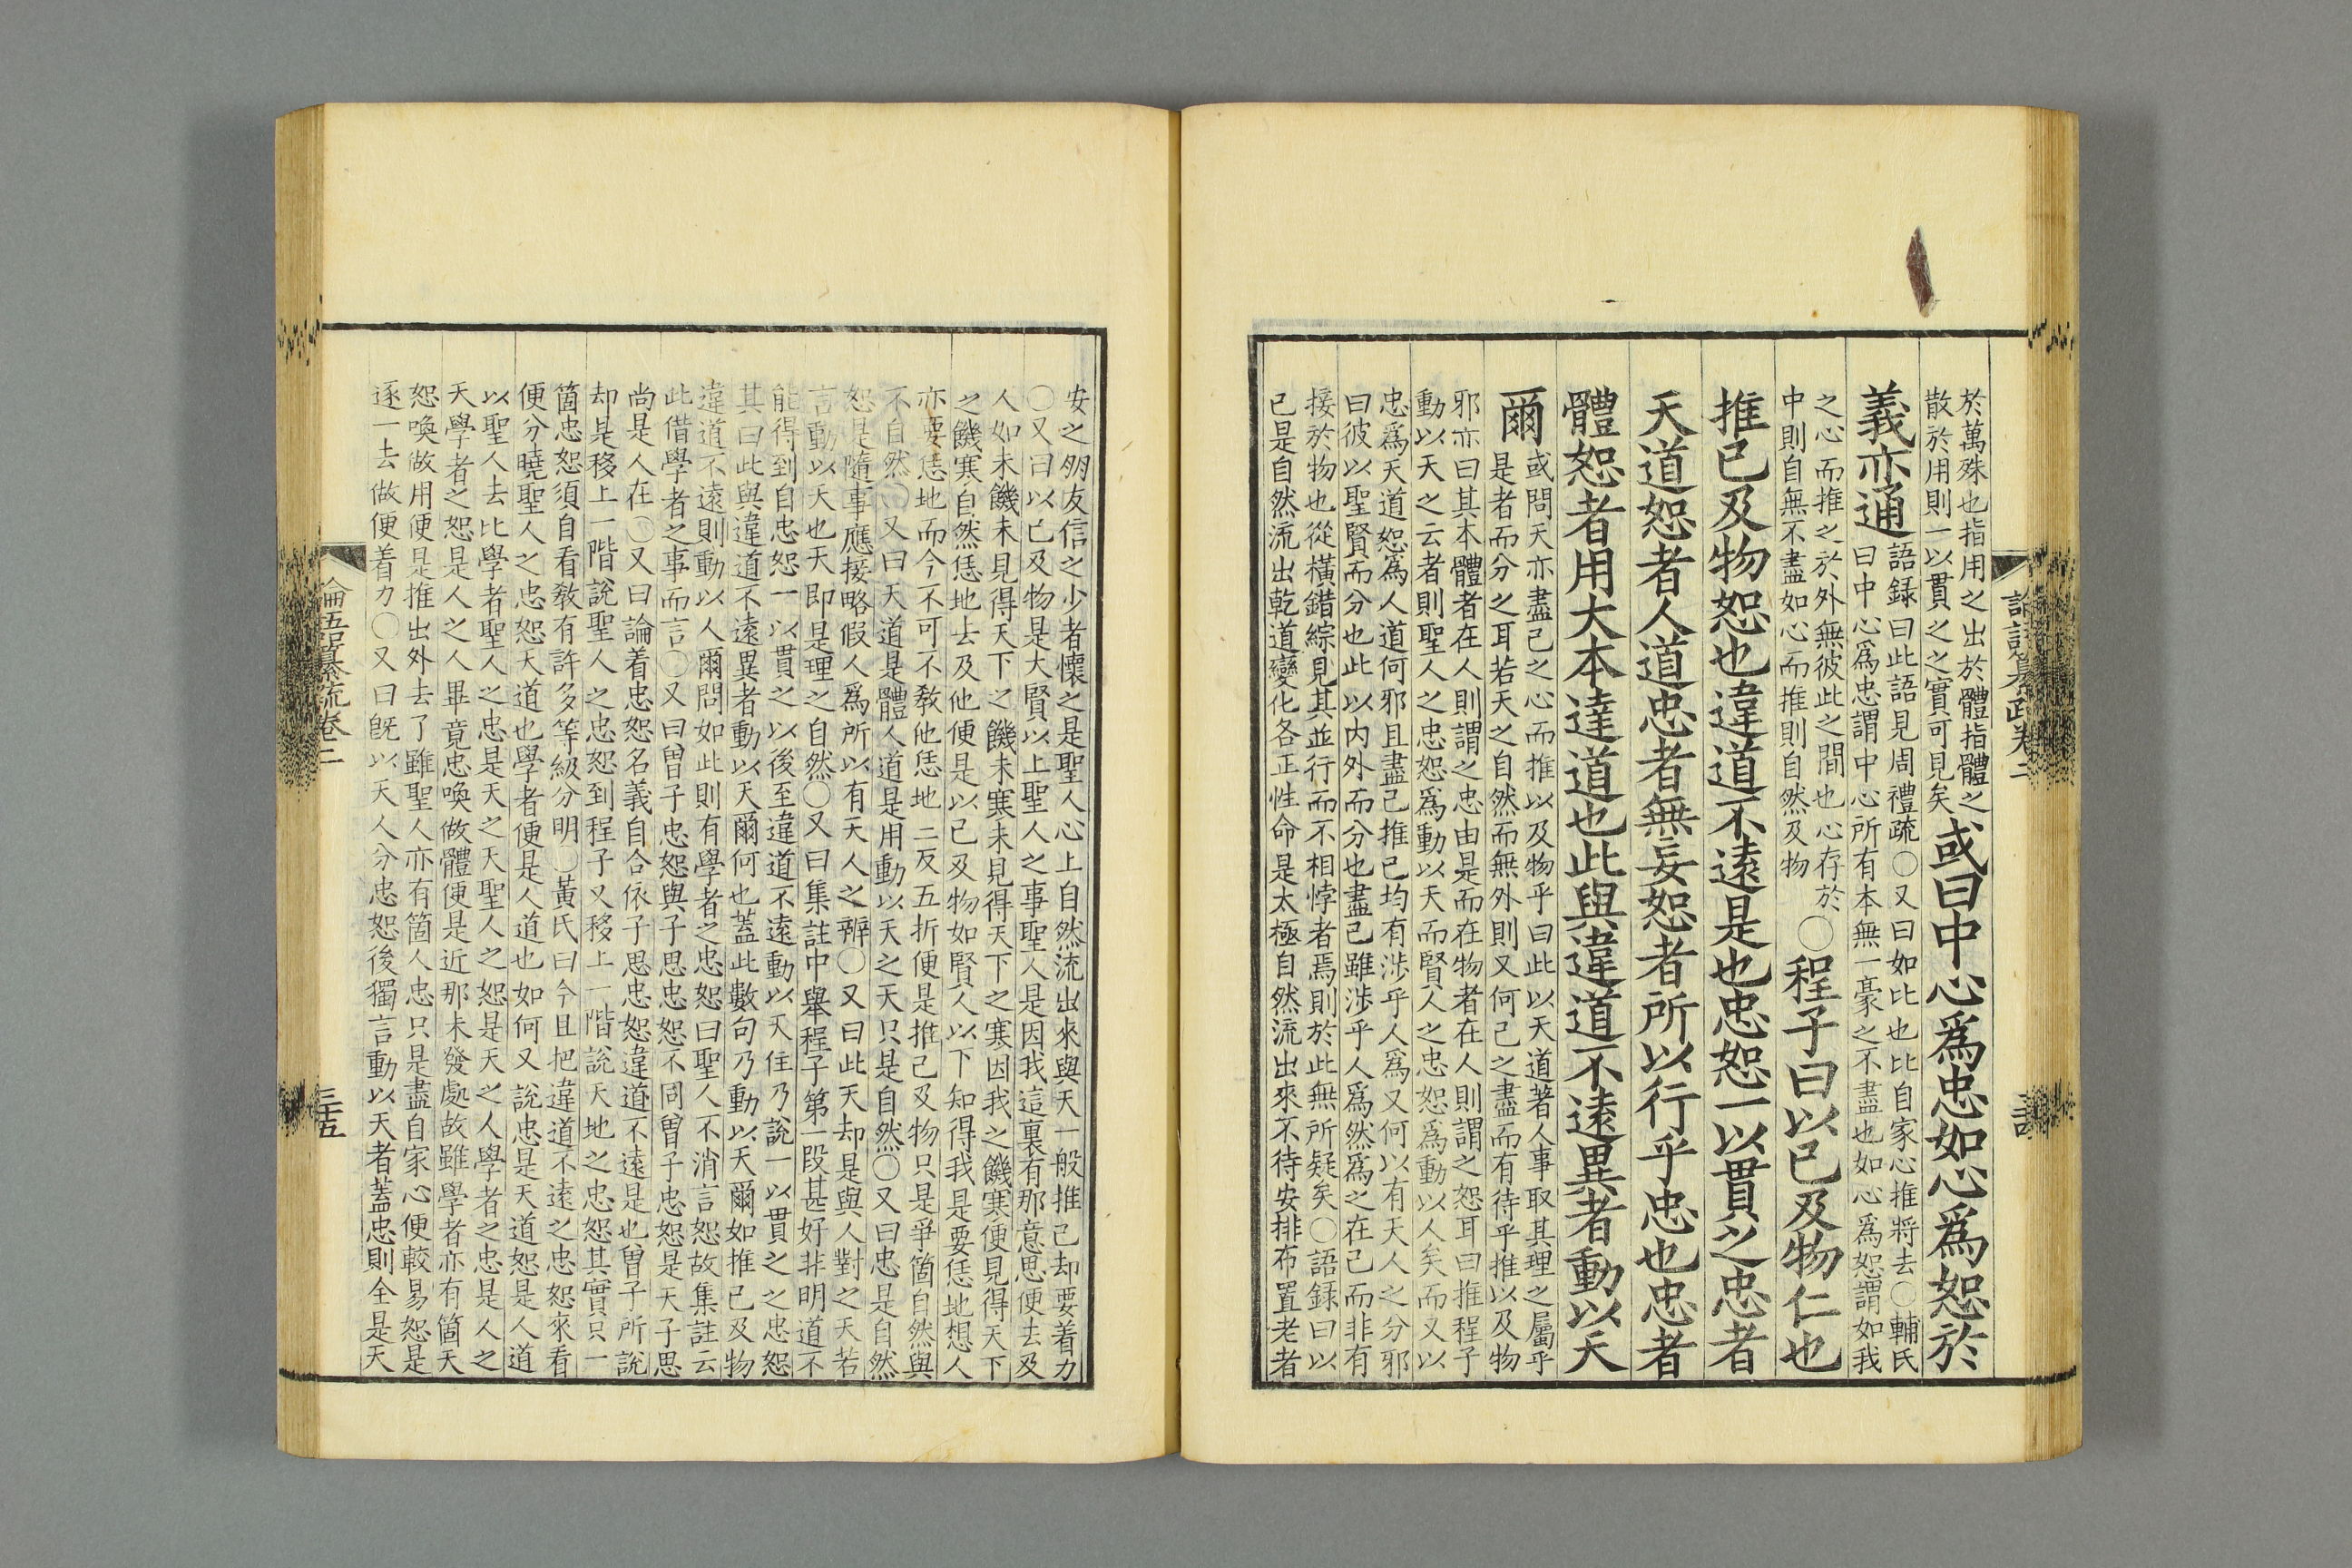 於萬殊也指用之出於體指體之
散於用則一以貫之之實可見矣
或曰中心爲忠如心爲恕於
義亦通
語録曰此語見周禮疏〇又曰如比也比自家心推將去〇輔氏
曰中心爲忠謂中心所有本無一豪之不盡也如心爲恕謂如我
之心而推之於外無彼此之間也心存於
中則自無不盡如心而推則自然及物
〇程子曰以已及物仁也
推已及物恕也違道不遠是也忠恕一以貫之忠者
天道恕者人道忠者無妄恕者所以行乎忠也忠者
體恕者用大本達道也此與違道不遠異者動以天
爾
或問天亦盡已之心而推以及物乎曰此以天道著人事取其理之屬乎
是者而分之耳若天之自然而無外則又何已之盡而有待乎推以及物
邪亦曰其本體者在人則謂之忠由是而在物者在人則謂之恕耳曰推程子
動以天之云者則聖人之忠恕爲動以天而賢人之忠恕爲動以人矣而又以
忠爲天道恕爲人道何邪且盡已推已均有涉乎人爲又何以有天人之分邪
曰彼以聖賢而分也此以内外而分也盡已雖涉乎人爲然爲之在已而非有
接於物也從橫錯綜見其並行而不相悖者焉則於此無所疑矣〇語録曰以
已是自然流出乾道變化各正性命是太極自然流出來不待安排布置老者
安之朋友信之少者懷之是聖人心上自然流出來與天一般推已却要着力
〇又曰以已及物是大賢以上聖人之事聖人是因我這裏有那意思便去及
人如未饑未見得天下之饑未寒未見得天下之寒因我之饑寒便見得天下
之饑寒自然恁地去及他便是以已及物如賢人以下知得我是要恁地想人
亦要恁地而今不可不教他恁地二反五折便是推已及物只是爭箇自然與
不自然〇又曰天道是體人道是用動以天之天只是自然〇又曰忠是自然
恕是隨事應接略假人爲所以有天人之辨〇又曰此天却是與人對之天若
言動以天也天即是理之自然〇又曰集註中舉程子第一段甚好非明道不
能得到自忠恕一以貫之以後至違道不遠動以天住乃說一以貫之之忠恕
其曰此與違道不遠異者動以天爾何也蓋此數句乃動以天爾如推已及物
違道不遠則動以人爾問如此則有學者之忠恕曰聖人不消言恕故集註云
此借學者之事而言〇又曰曽子忠恕與子思忠恕不同曽子忠恕是天子思
尚是人在〇又曰論着忠恕名義自合依子思忠恕違道不遠是也曽子所說
却是移上一階說聖人之忠恕到程子又移上一階說天地之忠恕其實只一
箇忠恕須自看教有許多等級分明〇黃氏曰今且把違道不遠之忠恕來看
便分曉聖人之忠恕天道也學者便是人道也如何又說忠是天道恕是人道
以聖人去比學者聖人之忠是天之天聖人之恕是天之人學者之忠是人之
天學者之恕是人之人畢竟忠喚做體便是近那未發處故雖學者亦有箇天
恕喚做用便是推出外去了雖聖人亦有箇人忠只是盡自家心便較易恕是
逐一去做便着力〇又曰旣以天人分忠恕後獨言動以天者蓋忠則全是天
論語纂疏卷二
三五